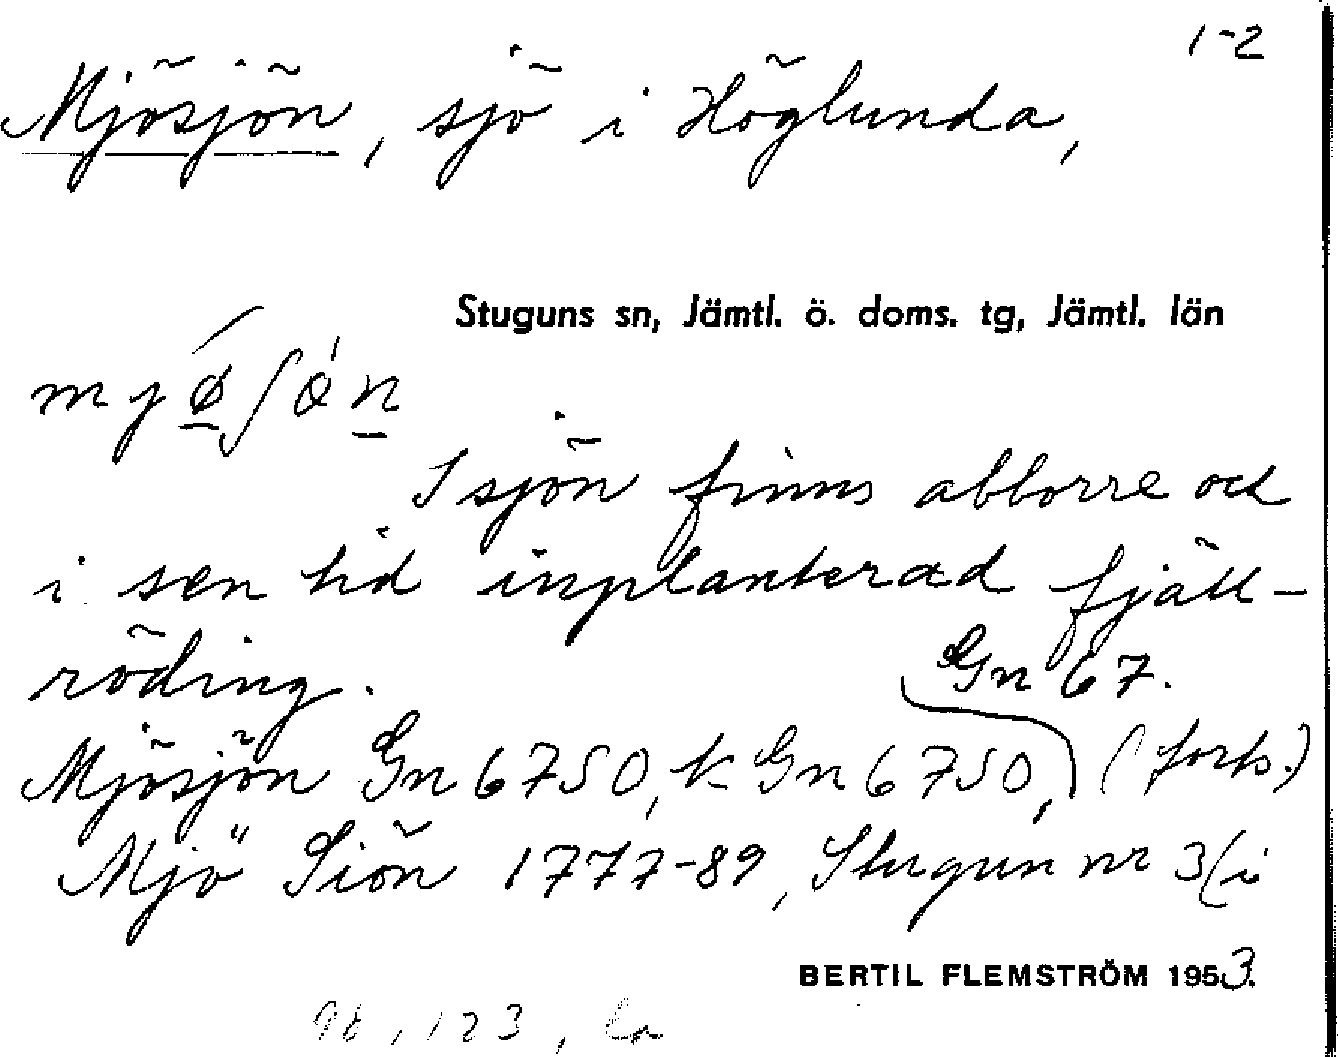 1-2
Mjösjön, sjö i Höglunda,
Stuguns sn, Jämtl. ö. doms. tg, Jämtl. län
I sjön finns abborre och
i sen tid inplanterad fjäll-
röding.
Gn 67.
Mjösjön Gn 6750, k Gn 6750, (forts.)
Mjö Siön 1777-89, Stugun nr 3(i
BERTIL FLEMSTRÖM 1953.